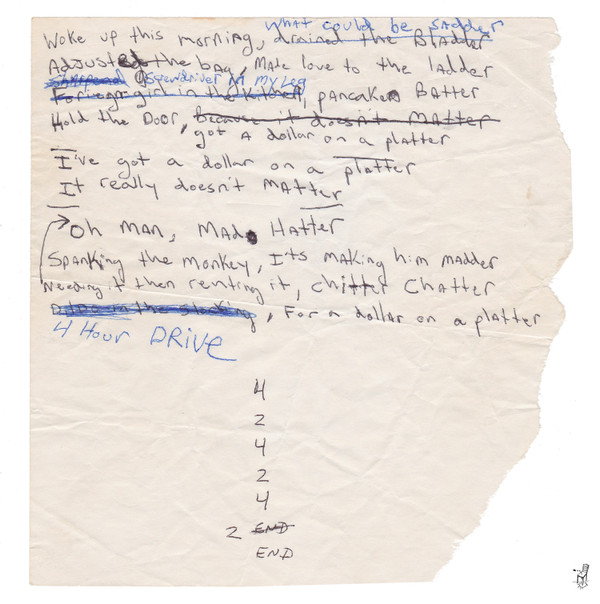 what could be sadder
Woke up this morning, drained the Bladder
Adjusted the bag, Made love to the ladder
Screwdriver in my Leg
Foriegn girl in the kitchen, pancake Batter
Hold the Door, because it doesn't matter
got a dollar on a platter
I've got a dollar on a platter
It really doesn't matter
Oh man, Mad Hatter
Spanking the monkey, Its making him madder
Needing it then renting it, chitter chatter
in the stocking, For a dollar on a platter
4 Hour DRive
4
2
4
2
4
2 END
END